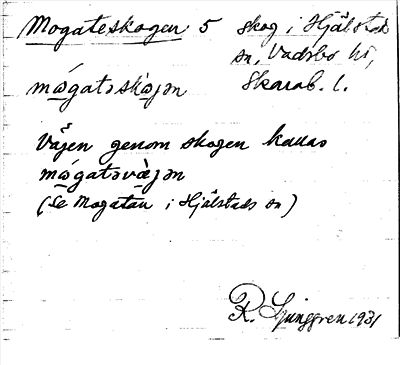 Mogateskogen 5 skog i Hjälstad
sn, Vadsbo hd,
mógatəskòjən Skarab. l.
Vägen genom skogen kallas
mógatəvä̀jən
(Se Mogatan i Hjälstads sn)
R. Ljunggren 1931